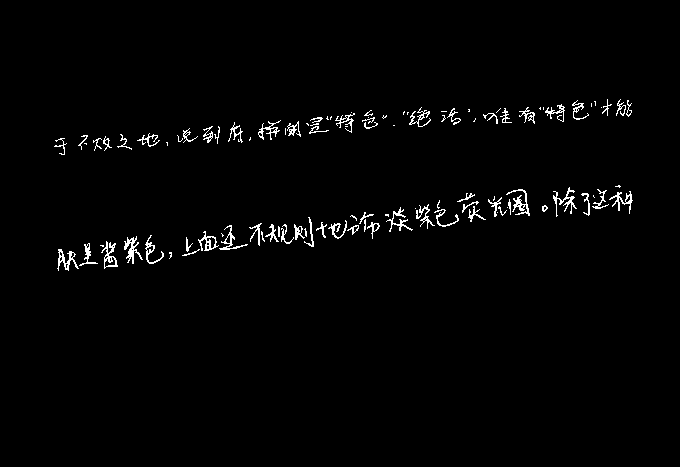 于不败之地，说到底，拼的是“特色”、“绝活”，唯有“特色”才能
肤是酱紫色，上面还不规则地分布淡紫色荧光圈。除了这种